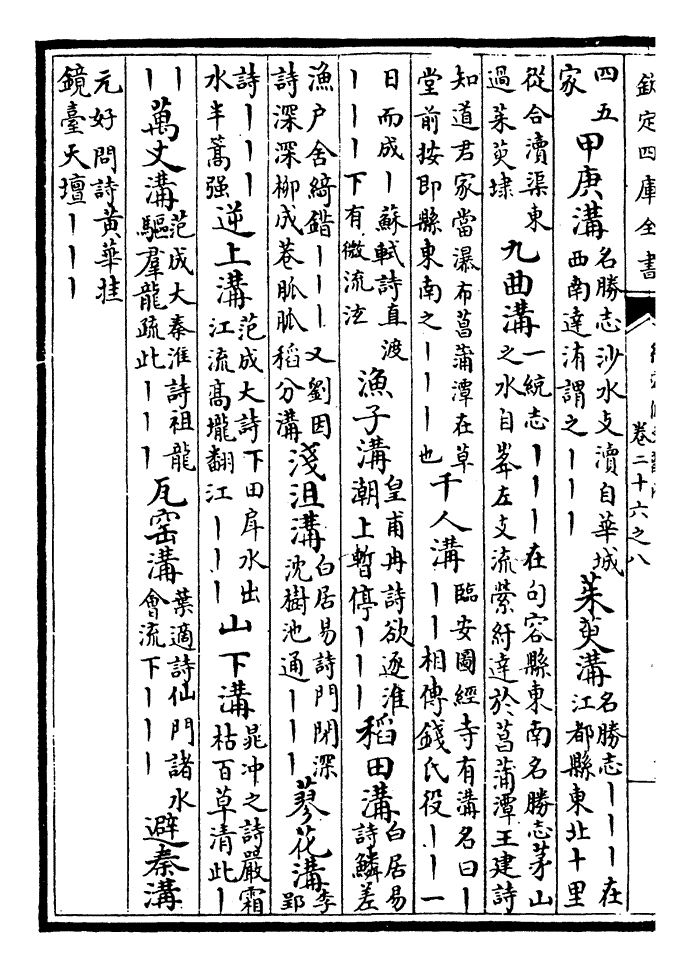 欽定四庫全書
卷二十六之八
四五家甲庚溝名勝志沙水支瀆自華城西南達洧謂之丨丨丨茱萸溝名勝志丨丨丨在江都縣東北十里
從合瀆渠東過茱萸埭九曲溝一統志丨丨丨在句容縣東南名勝志茅山之水自峯左支流縈紆達於菖蒲潭王建詩
知道君家當瀑布菖蒲潭在草堂前按即縣東南之丨丨丨也千人溝臨安圖經寺有溝名曰丨丨丨相傳錢氏役丨丨一
日而成丨蘇軾詩直渡丨丨丨下有微流泫漁子溝皇甫冉詩欲逐淮潮上暫停丨丨丨稻田溝白居易詩鱗差
漁户舍綺錯丨丨丨又劉因詩深深柳成巷脈脈稻分溝淺沮溝白居易詩門閉深沈樹池通丨丨丨蓼花溝李郢
詩丨丨丨水半篙强逆上溝范成大詩下田戽水出江流高壠翻江丨丨丨山下溝晁冲之詩嚴霜枯百草清此丨
丨丨萬丈溝范成大秦淮詩祖龍驅羣龍疏此丨丨丨瓦窑溝葉適詩仙門諸水會流下丨丨丨避秦溝
元好問詩黄華挂鏡臺天壇丨丨丨